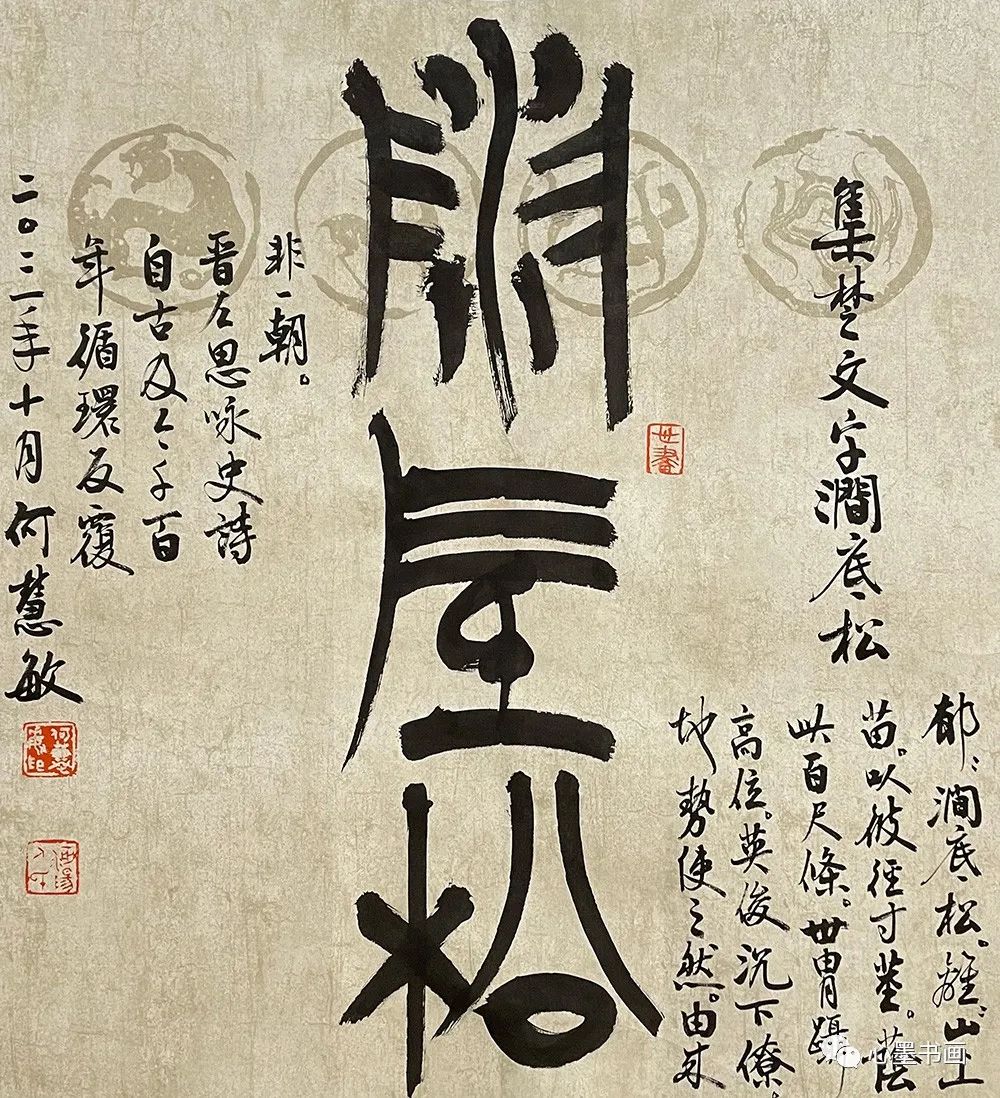 集楚文字澗底松
郁〻澗底松。離〻山上
苗。以彼徑寸莖。蔭
此百尺條。世冑躡
高位。英俊沉下僚。
地勢使之然。由来
澗底松
非一朝。
晉左思咏史詩
自古及今千百
年循環反覆
二〇二一年十月何慧敏
世書
何慧敏印
心墨书画